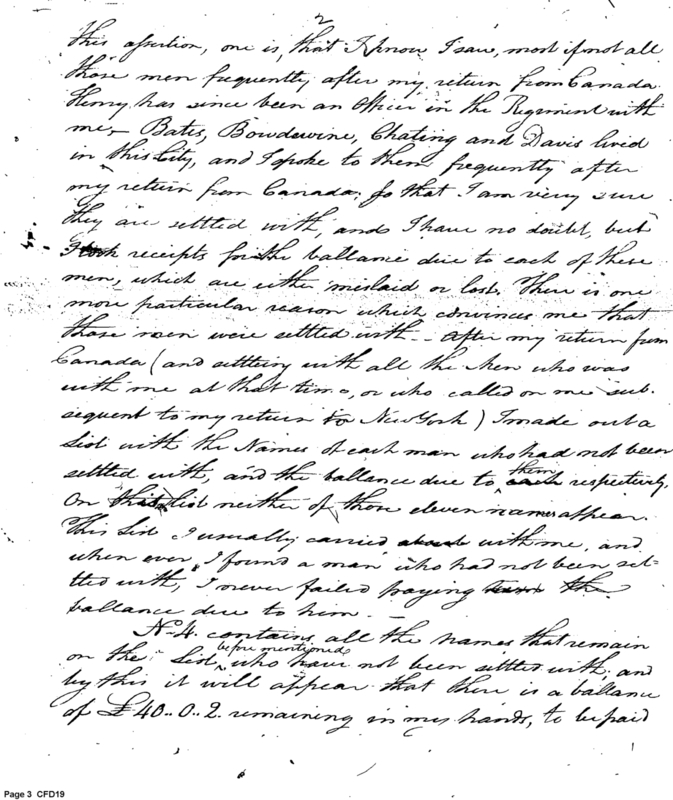 2
this assertion, one is, that I know I saw, most if not all
those men frequently after my return from Canada.
Henry has since been an Officer in the Regiment with
me,- Bates, Bowdewine, Chating and Davis lived
in this City, and I spoke to them frequently after
my return from Canada; so that I am very sure
they are settled with, and I have no doubt, but
I took receipts for the ballance due to each of these
men, which are either mislaid or lost. There is one
more particular reason which convinces me that
those men were settled with.- After my return from
Canada (and settleing with all the Men who was
with me at that time, or who called on me sub-
sequent to my return to New York) I made out a
List with the Names of each man who had not been
settled with, and the ballance due to each them respectively.
On this list neither of those eleven names appear.
This List I usually carried about with me, and
when ever I found a man who had not been set-
tled with, I never failed paying the
ballance due to him.-
No. 4. contains all the names that remain
on the List before mentioned who have not been settled with, and
by this it will appear that there is a ballance
of £40..0..2. remaining in my hands, to be paid
Page 3 CFD19